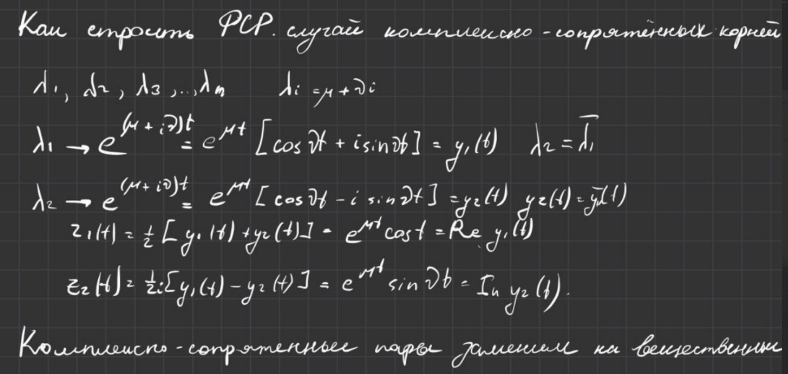 Как строить РСР. случай комплексно-сопряжённых корней
λ₁, λ₂, λ₃, ..., λₙ λi = μ + νi
λ₁ → e^(μ + iν)t = e^μt [cos νt + i sin νt] = y₁(t) λ₂ = λ̄₁
λ₂ → e^(μ + iν)t = e^μt [cos νt - i sin νt] = y₂(t) y₂(t) = ȳ₁(t)
z₁(t) = 1/2 [y₁(t) + y₂(t)] = e^μt cos t = Re y₁(t)
z₂(t) = 1/2i [y₁(t) - y₂(t)] = e^μt sin νt = Im y₂(t).
Комплексно-сопряженные пары заменим на вещественные